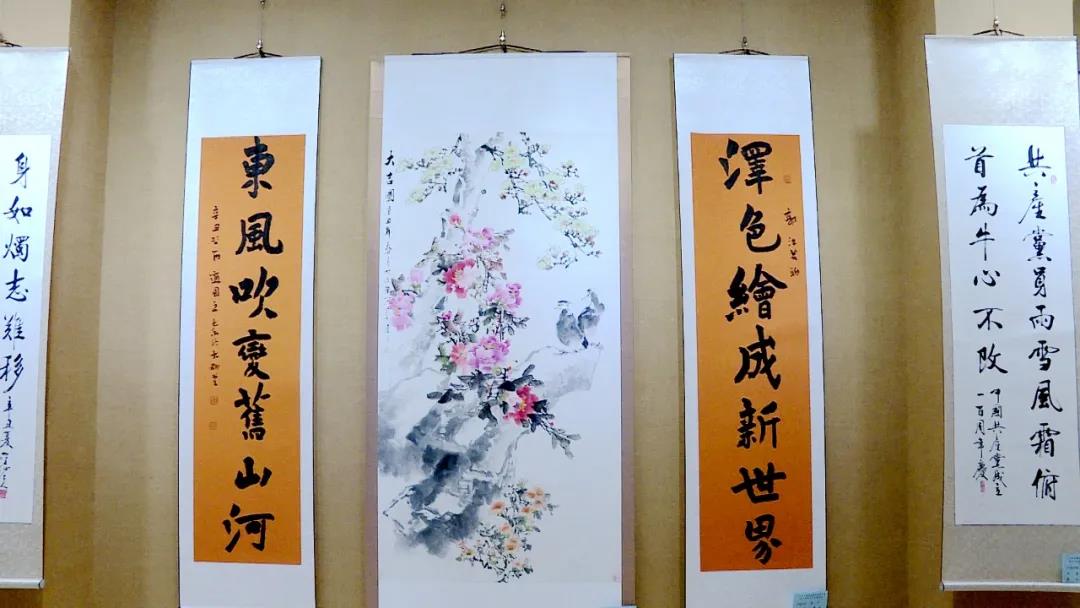 共產黨員雨雪風霜俯
首為牛心不改
中國共產黨成立
一百周年慶
澤色繪成新世界
大吉圖
東風吹變舊山河
辛丑
身如燭志難移
辛丑夏